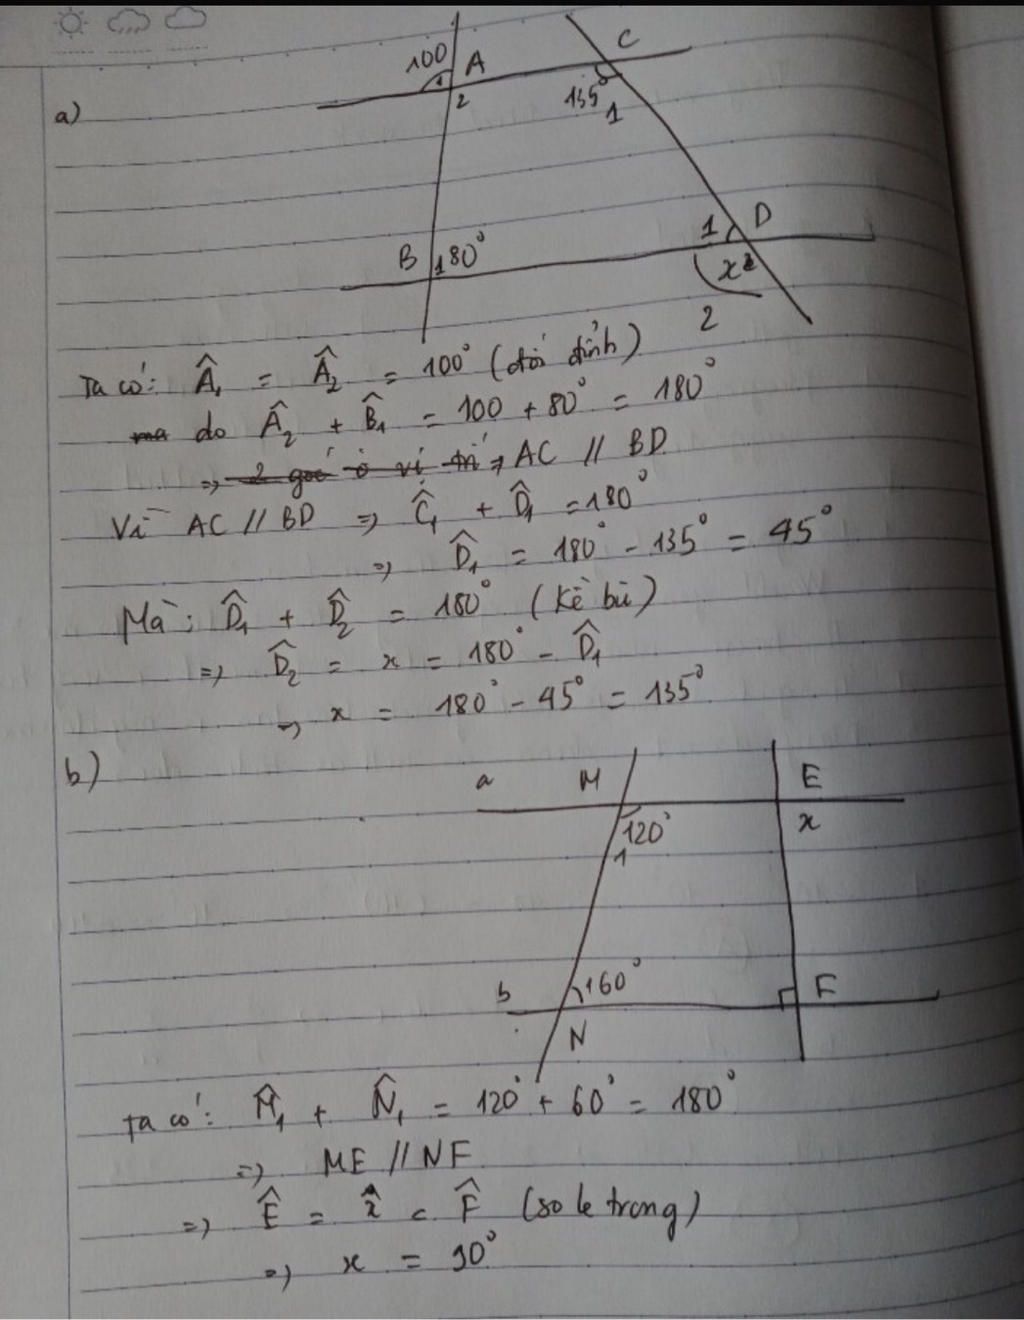 a)
100
1
A
2
C
135°
1
B
1 80°
1
D
x 2
2
Ta có: Â₁ = Â₂ = 100° (đối đỉnh)
ma do Â₂ + B̂₁ = 100 + 80° = 180°
=> 2 goć ở vị trí => AC // BD
Vì AC // BD => Ĉ₁ + D̂₁ = 180°
=> D̂₁ = 180° - 135° = 45°
Mà: D̂₁ + D̂₂ = 180° (kề bù)
=> D̂₂ = x = 180° - D̂₁
=> x = 180° - 45° = 135°
b)
a
M
E
120°
x
1
b
160°
F
N
Ta có: M̂₁ + N̂₁ = 120° + 60° = 180°
=> ME // NF
=> Ê = x̂ = F̂ (so le trong)
=> x = 90°